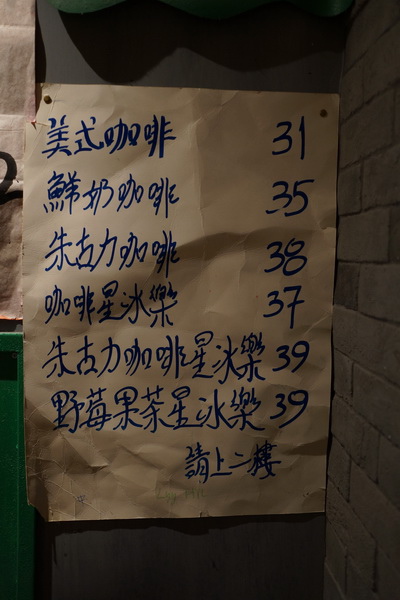 美式咖啡 31
鮮奶咖啡 35
朱古力咖啡 38
咖啡星冰樂 37
朱古力咖啡星冰樂 39
野莓果茶星冰樂 39
請上二樓